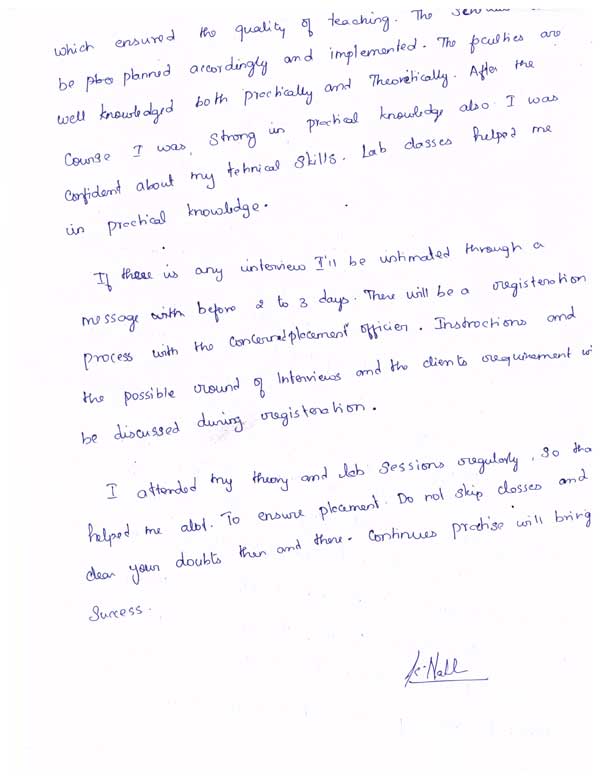 which ensured the quality of teaching. The
be planned accordingly and implemented. The faculties are
well knowledged both practically and Theoretically. After the
Course I was, strong in practical knowledge also I was
confident about my tehnical skills. Lab classes helped me
in practical knowledge.
If there is any interview I'll be intimated through a
message with before 2 to 3 days. There will be a registeration
process with the concerned placement officier. Instructions and
the possible round of Interviews and the clients requirement
be discussed during registeration.
I attended my theory and lab sessions regularly, so
helped me alot. To ensure placement. Do not skip classes and
clear your doubts then and there. Continues practise will bring
Success.